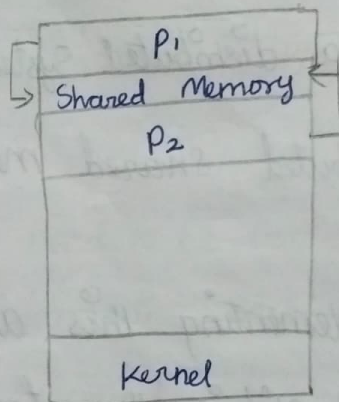 P1
Shared Memory
P2
Kernel